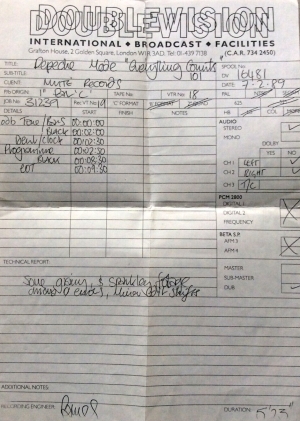 DOUBLEVISION
INTERNATIONAL • BROADCAST • FACILITIES
Grafton House, 2 Golden Square, London W1R 3AD, Tel: 01-439 7138 (C.A.R. 734 2450)
TITLE: Depeche Mode "Everything Counts" SPOOL No.
SUB TITLE: 101 DV 16481
CLIENT: MUTE Records DATE: 7-2-89
MB ORIGIN: 1" TAPE No. VTR No. 18 PAL
JOB No. 31239 Rec VT No 19 "C" FORMAT 625
START FINISH NOTES HB
Bars 00:00:00
Black 00:02:00
Clock 00:02:30
Programme 00:02:30
Black 00:08:30
EOT 00:09:30
AUDIO
STEREO
MONO
DOLBY
YES NO
CH 1 LEFT
CH 2 RIGHT
CH 3 T/C
PCM 2800
DIGITAL 1
DIGITAL 2
FREQUENCY
BETA S.P.
AFM 3
AFM 4
TECHNICAL REPORT
MASTER
SUB-MASTER
DUB
Some grain, & sparkles
ADDITIONAL NOTES:
RECORDING ENGINEER:
DURATION: 5'23"